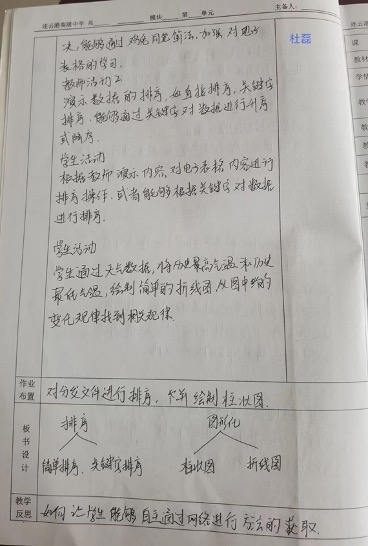 连云港高级中学 高 模块 第 单元 主备人:
杜磊
决,能够通过鸡兔同笼算法,加强对电子
表格的学习.
教师活动2
演示数据的排序,如直接排序,关键字
排序,能够通过关键字对数据进行升序
或降序.
学生活动
根据教师演示内容,对电子表格内容进行
排序操作.或者能够根据关键字对数据
进行排序.
学生活动
学生通过天气数据,将历史最高气温和历史
最低气温,绘制简单的折线图,从图中的
变化规律找到相关规律.
作业
布置
对分发文件进行排序,简单绘制柱状图.
板
书
设
计
排序 图形化
简单排序 关键字排序 柱状图 折线图
教学
反思
如何让学生能够自主通过网络进行方法的获取.
课
教材
学情